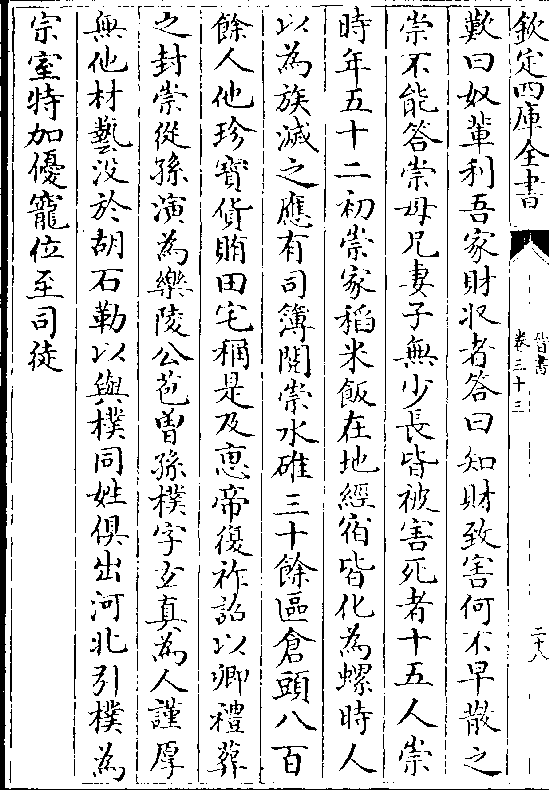 欽定四庫全書
晉書
卷三十三
二十八
歎曰奴輩利吾家財收者答曰知財致害何不早散之
崇不能答崇母兄妻子無少長皆被害死者十五人崇
時年五十二初崇家稻米飯在地經宿皆化為螺時人
以為族滅之應有司簿閱崇水碓三十餘區倉頭八百
餘人他珍寶貨賄田宅稱是及惠帝復祚詔以卿禮葬
之封崇從孫演為樂陵公苞曽孫樸字𤣥真為人謹厚
無他材藝没於胡石勒以與樸同姓俱出河北引樸為
宗室特加優寵位至司徒